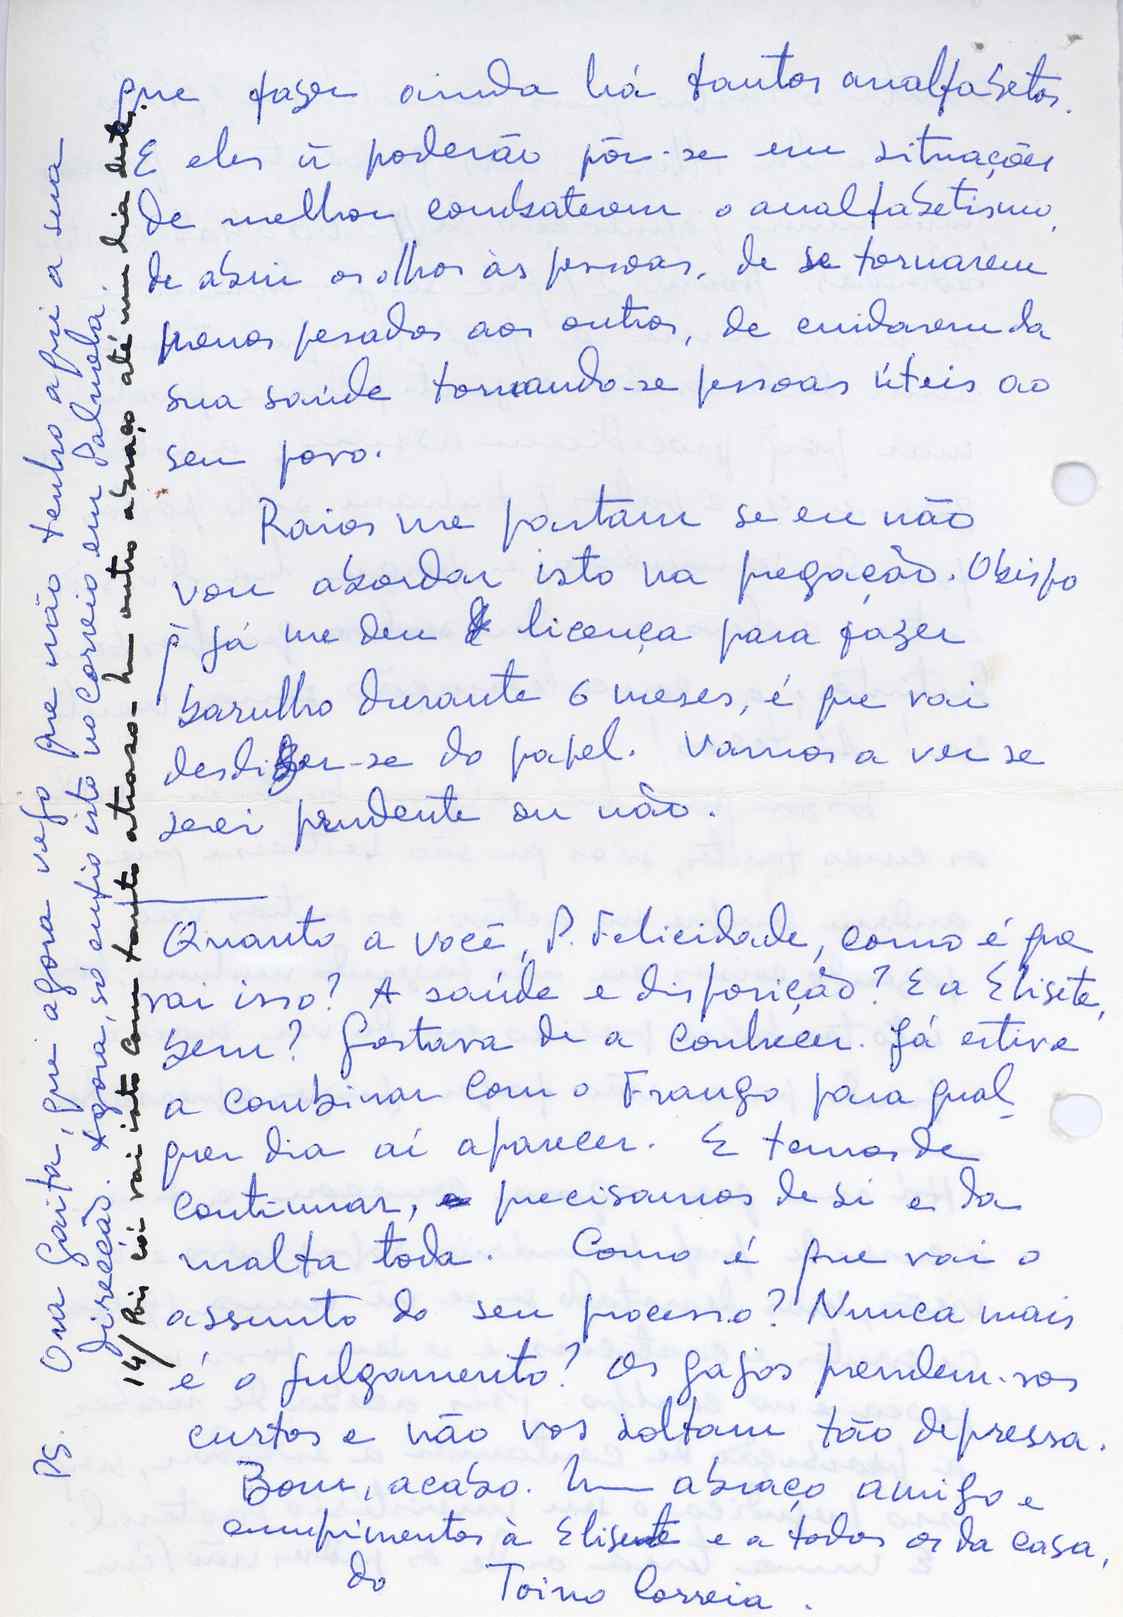 que fazer ainda há tantos analfabetos.
E eles ñ poderão pôr-se em situações
de melhor combaterem o analfabetismo,
de abrir os olhos às pessoas, de se tornarem
menos pesados aos outros, de cuidarem da
sua saúde tornando-se pessoas úteis ao
seu povo.
Raios me partam se eu não
vou abordar isto na pregação. O bispo
q já me deu licença para fazer
barulho durante 6 meses, é que vai
desdizer-se do papel. Vamos a ver se
serei prudente ou não.
Quanto a você, P. Felicidade, como é que
vai isso? A saúde e disposição? E a Elisete,
bem? Gostava de a conhecer. Já estive
a combinar com o Frango para qual-
quer dia aí aparecer. E temos de
continuar, precisamos de si e da
malta toda. Como é que vai o
assunto do seu processo? Nunca mais
é o julgamento? Os gajos prendem-vos
curtos e não vos soltam tão depressa.
Bom, acabo. Um abraço amigo e
cumprimentos à Elisete e a todos os da casa,
do Toino Correia.
PS. Ora gaita, que agora vejo que não tenho aqui a sua
direcção. Agora, só enfio isto no correio em Palmela.
14/ Pois cói vai isto com tanto atraso - Um outro abraço até um dia destes.